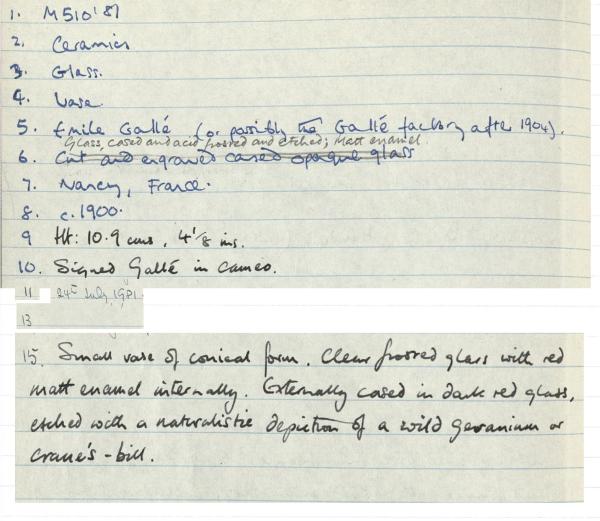 1. M510'81
2. Ceramics
3. Glass.
4. Vase
5. Emile Gallé (or possibly the Gallé factory after 1904).
Glass, cased and acid frosted and etched; matt enamel
6. Cut and engraved cased opaque glass
7. Nancy, France.
8. c.1900.
9 Ht: 10.9 cms, 4 1/8 ins.
10. Signed Gallé in cameo.
11 24th July, 1981.
13
15. Small vase of conical form. Clear frosted glass with red
matt enamel internally. Externally cased in dark red glass,
etched with a naturalistic depiction of a wild geranium or
crane's-bill.